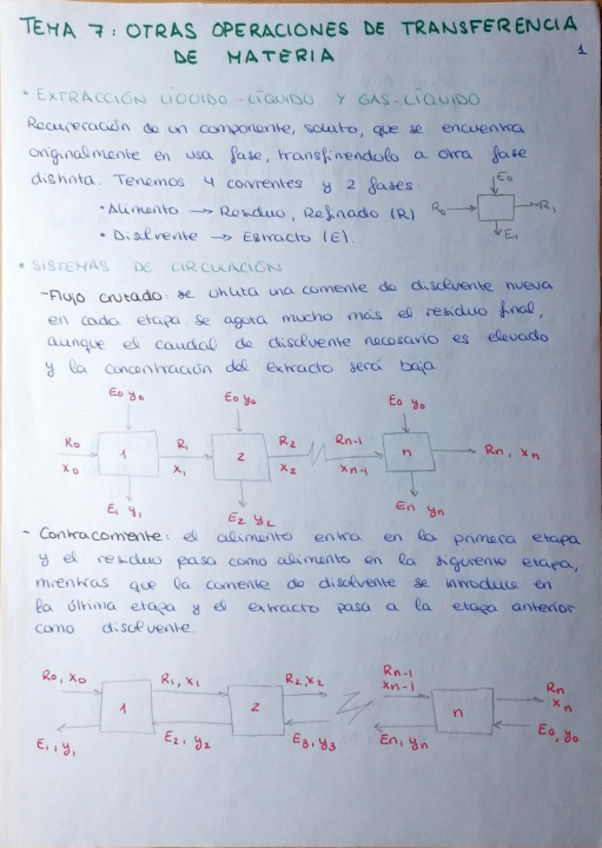 TEMA 7: OTRAS OPERACIONES DE TRANSFERENCIA
DE MATERIA
1
• EXTRACCIÓN LÍQUIDO-LÍQUIDO Y GAS-LÍQUIDO
Recuperación de un componente, soluto, que se encuentra
originalmente en usa fase, transfiriendolo a otra fase
distinta. Tenemos 4 corrientes y 2 fases:
• Alimento → Residuo, Refinado (R)
• Disolvente → Extracto (E).
E0
R0
R1
E1
• SISTEMAS DE CIRCULACIÓN
- Flujo cruzado: se utiliza una corriente de disolvente nueva
en cada etapa. Se agota mucho más el residuo final,
aunque el caudal de disolvente necesario es elevado
y la concentración del extracto será baja
E0 y0 E0 y0 E0 y0
R0 1 R1 2 R2 Rn-1 n Rn, xn
x0 x1 x2 xn-1
E1 y1 E2 y2 En yn
- Contracorriente: el alimento entra en la primera etapa
y el residuo pasa como alimento en la siguiente etapa,
mientras que la corriente de disolvente se introduce en
la última etapa y el extracto pasa a la etapa anterior
como disolvente.
R0, x0 R1, x1 R2, x2 Rn-1 xn-1 Rn xn
1 2 n
E1, y1 E2, y2 E3, y3 En, yn E0, y0